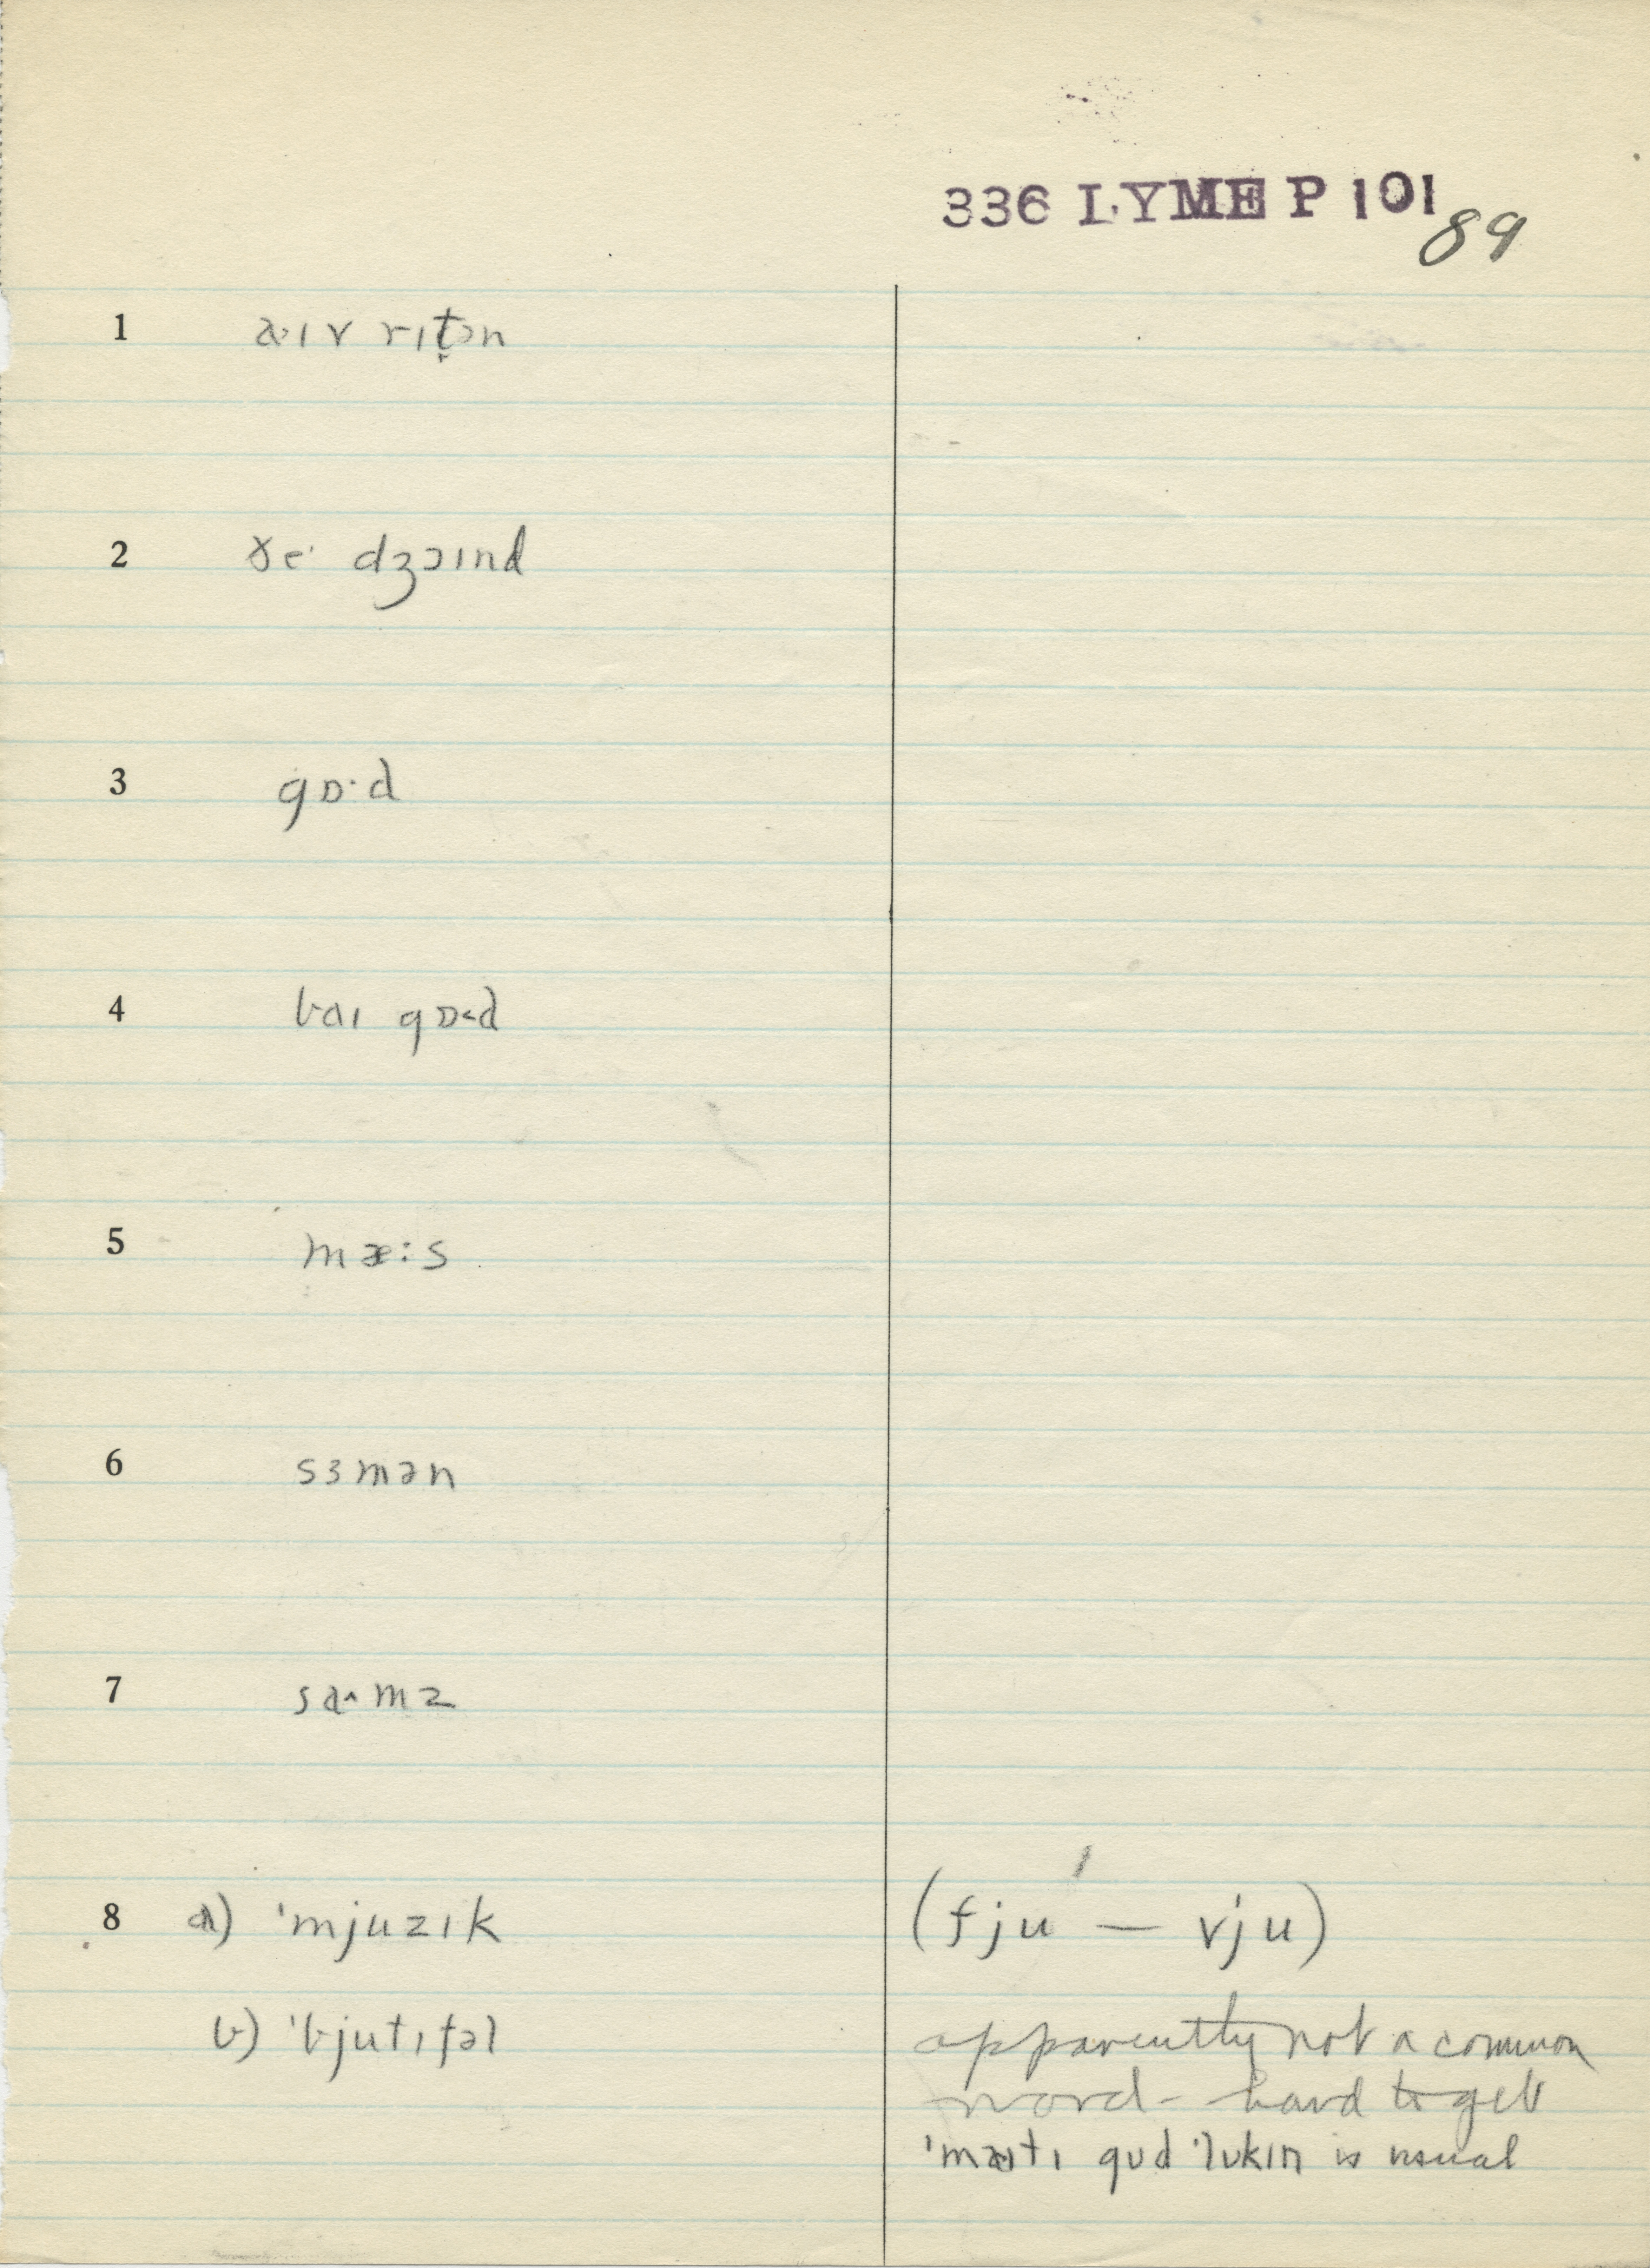 336 LYME P 101
89
1 a·ɪv rɪt̩ən
2 ðe· dʒɔɪnd
3 gɒ·d
4 baɪ gɒ·d
5 mæ:s
6 sɜmən
7 sa·mz
8 a) 'mjuzɪk (fju — vju)
b) 'bjutɪfəl apparently not a common
word - hard to get
'maɪtɪ gʊd 'lʊkɪn is usual